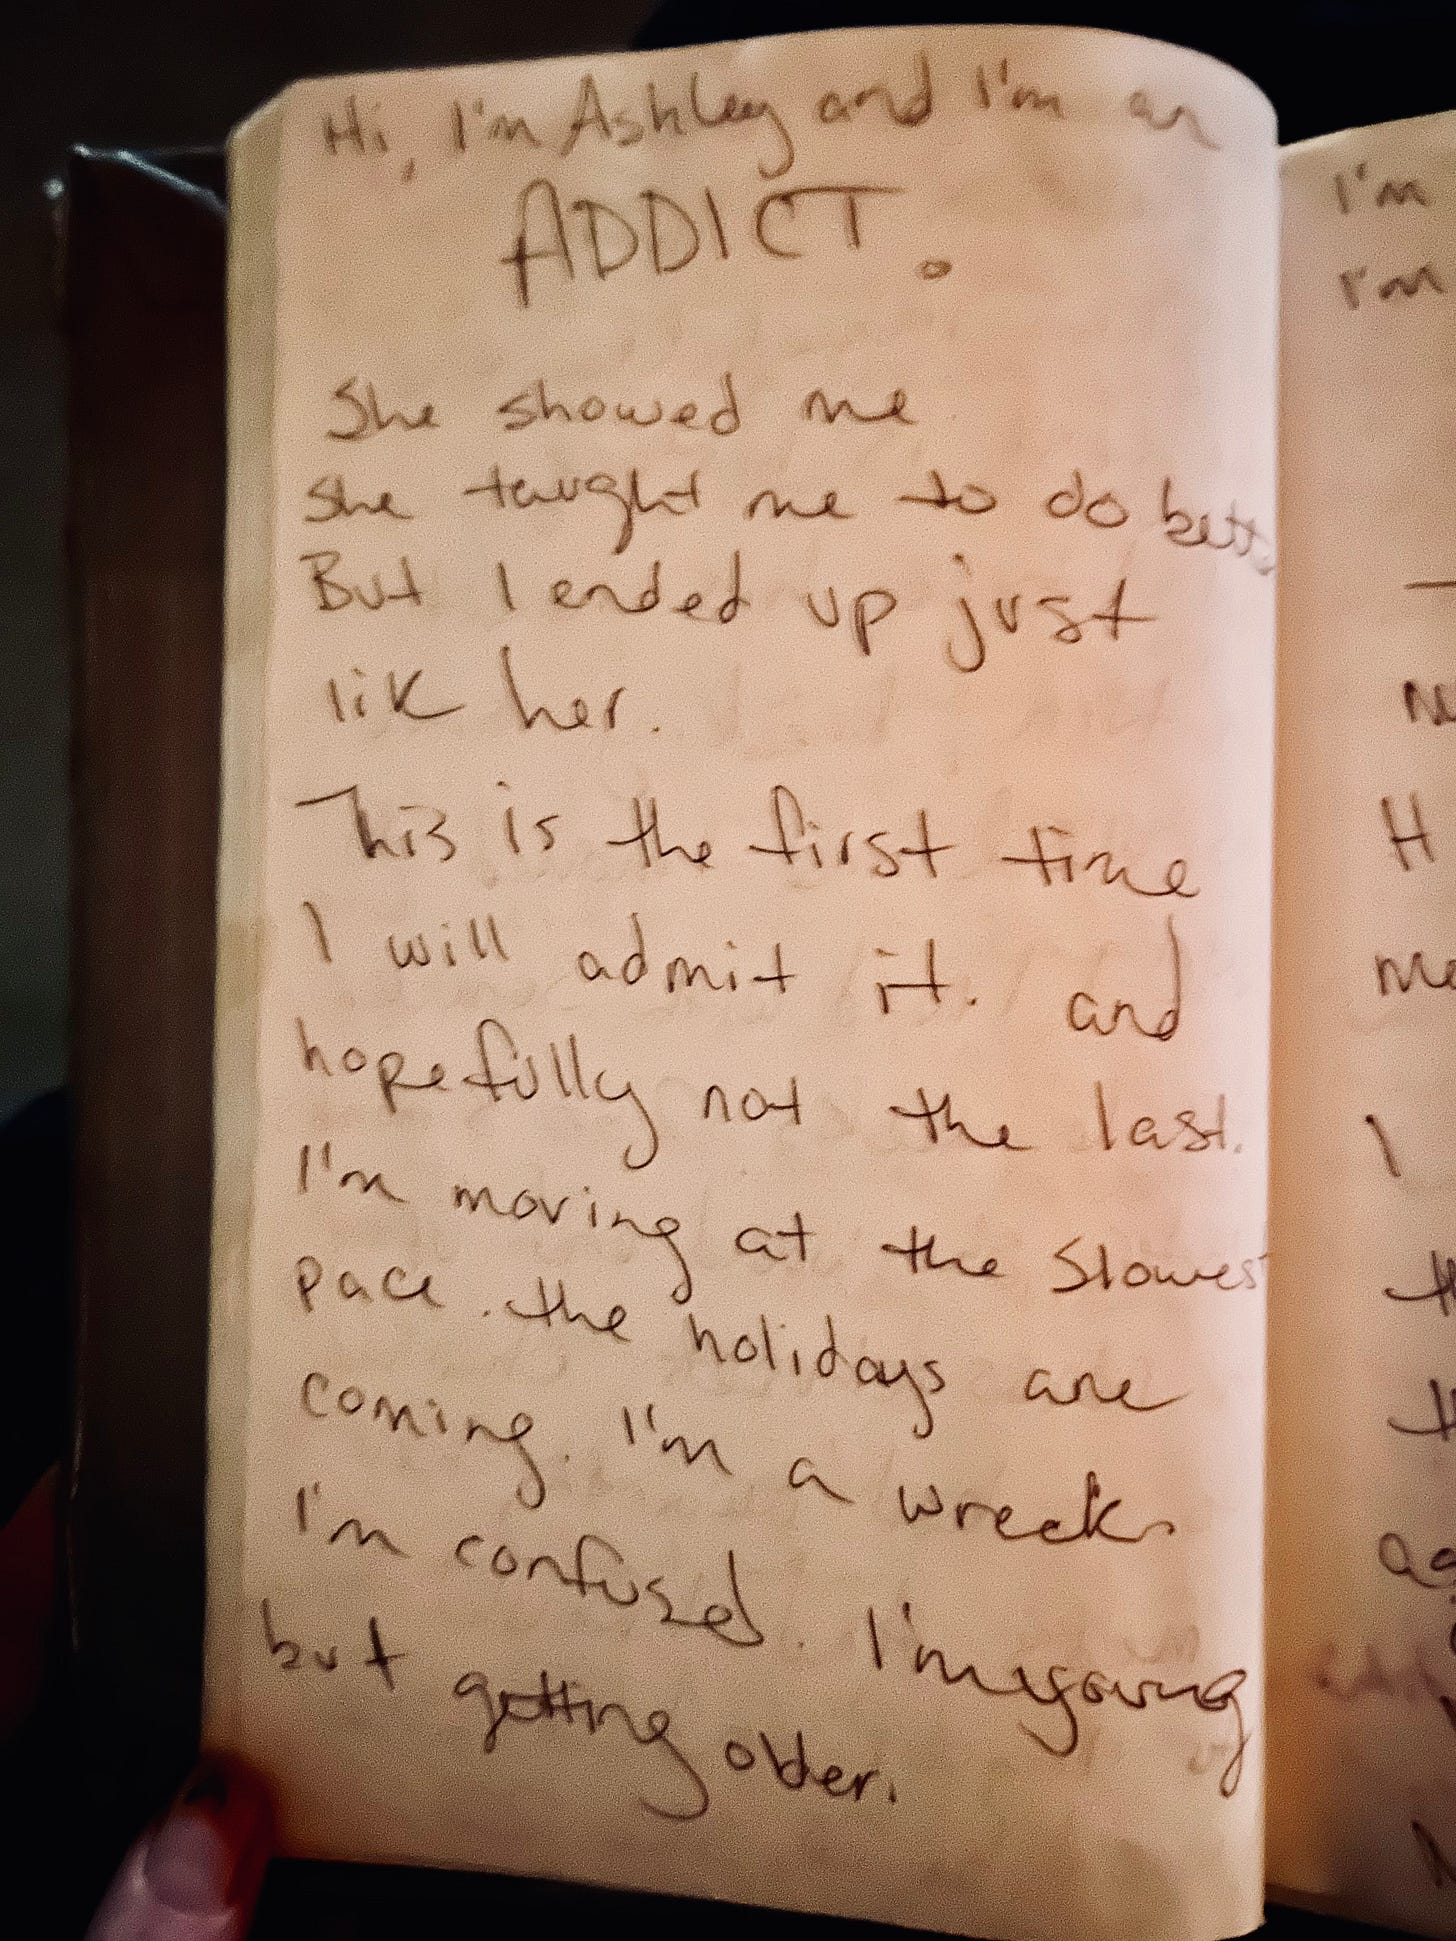 Hi, I'm Ashley and I'm an
ADDICT.
She showed me
she taught me to do
But I ended up just
lik her.
This is the first time
I will admit it. and
hopefully not the last.
I'm moving at the slowest
pace. the holidays are
coming. I'm a wreck
I'm confused. I'm young
but getting older.
I'm
I'm
H
I